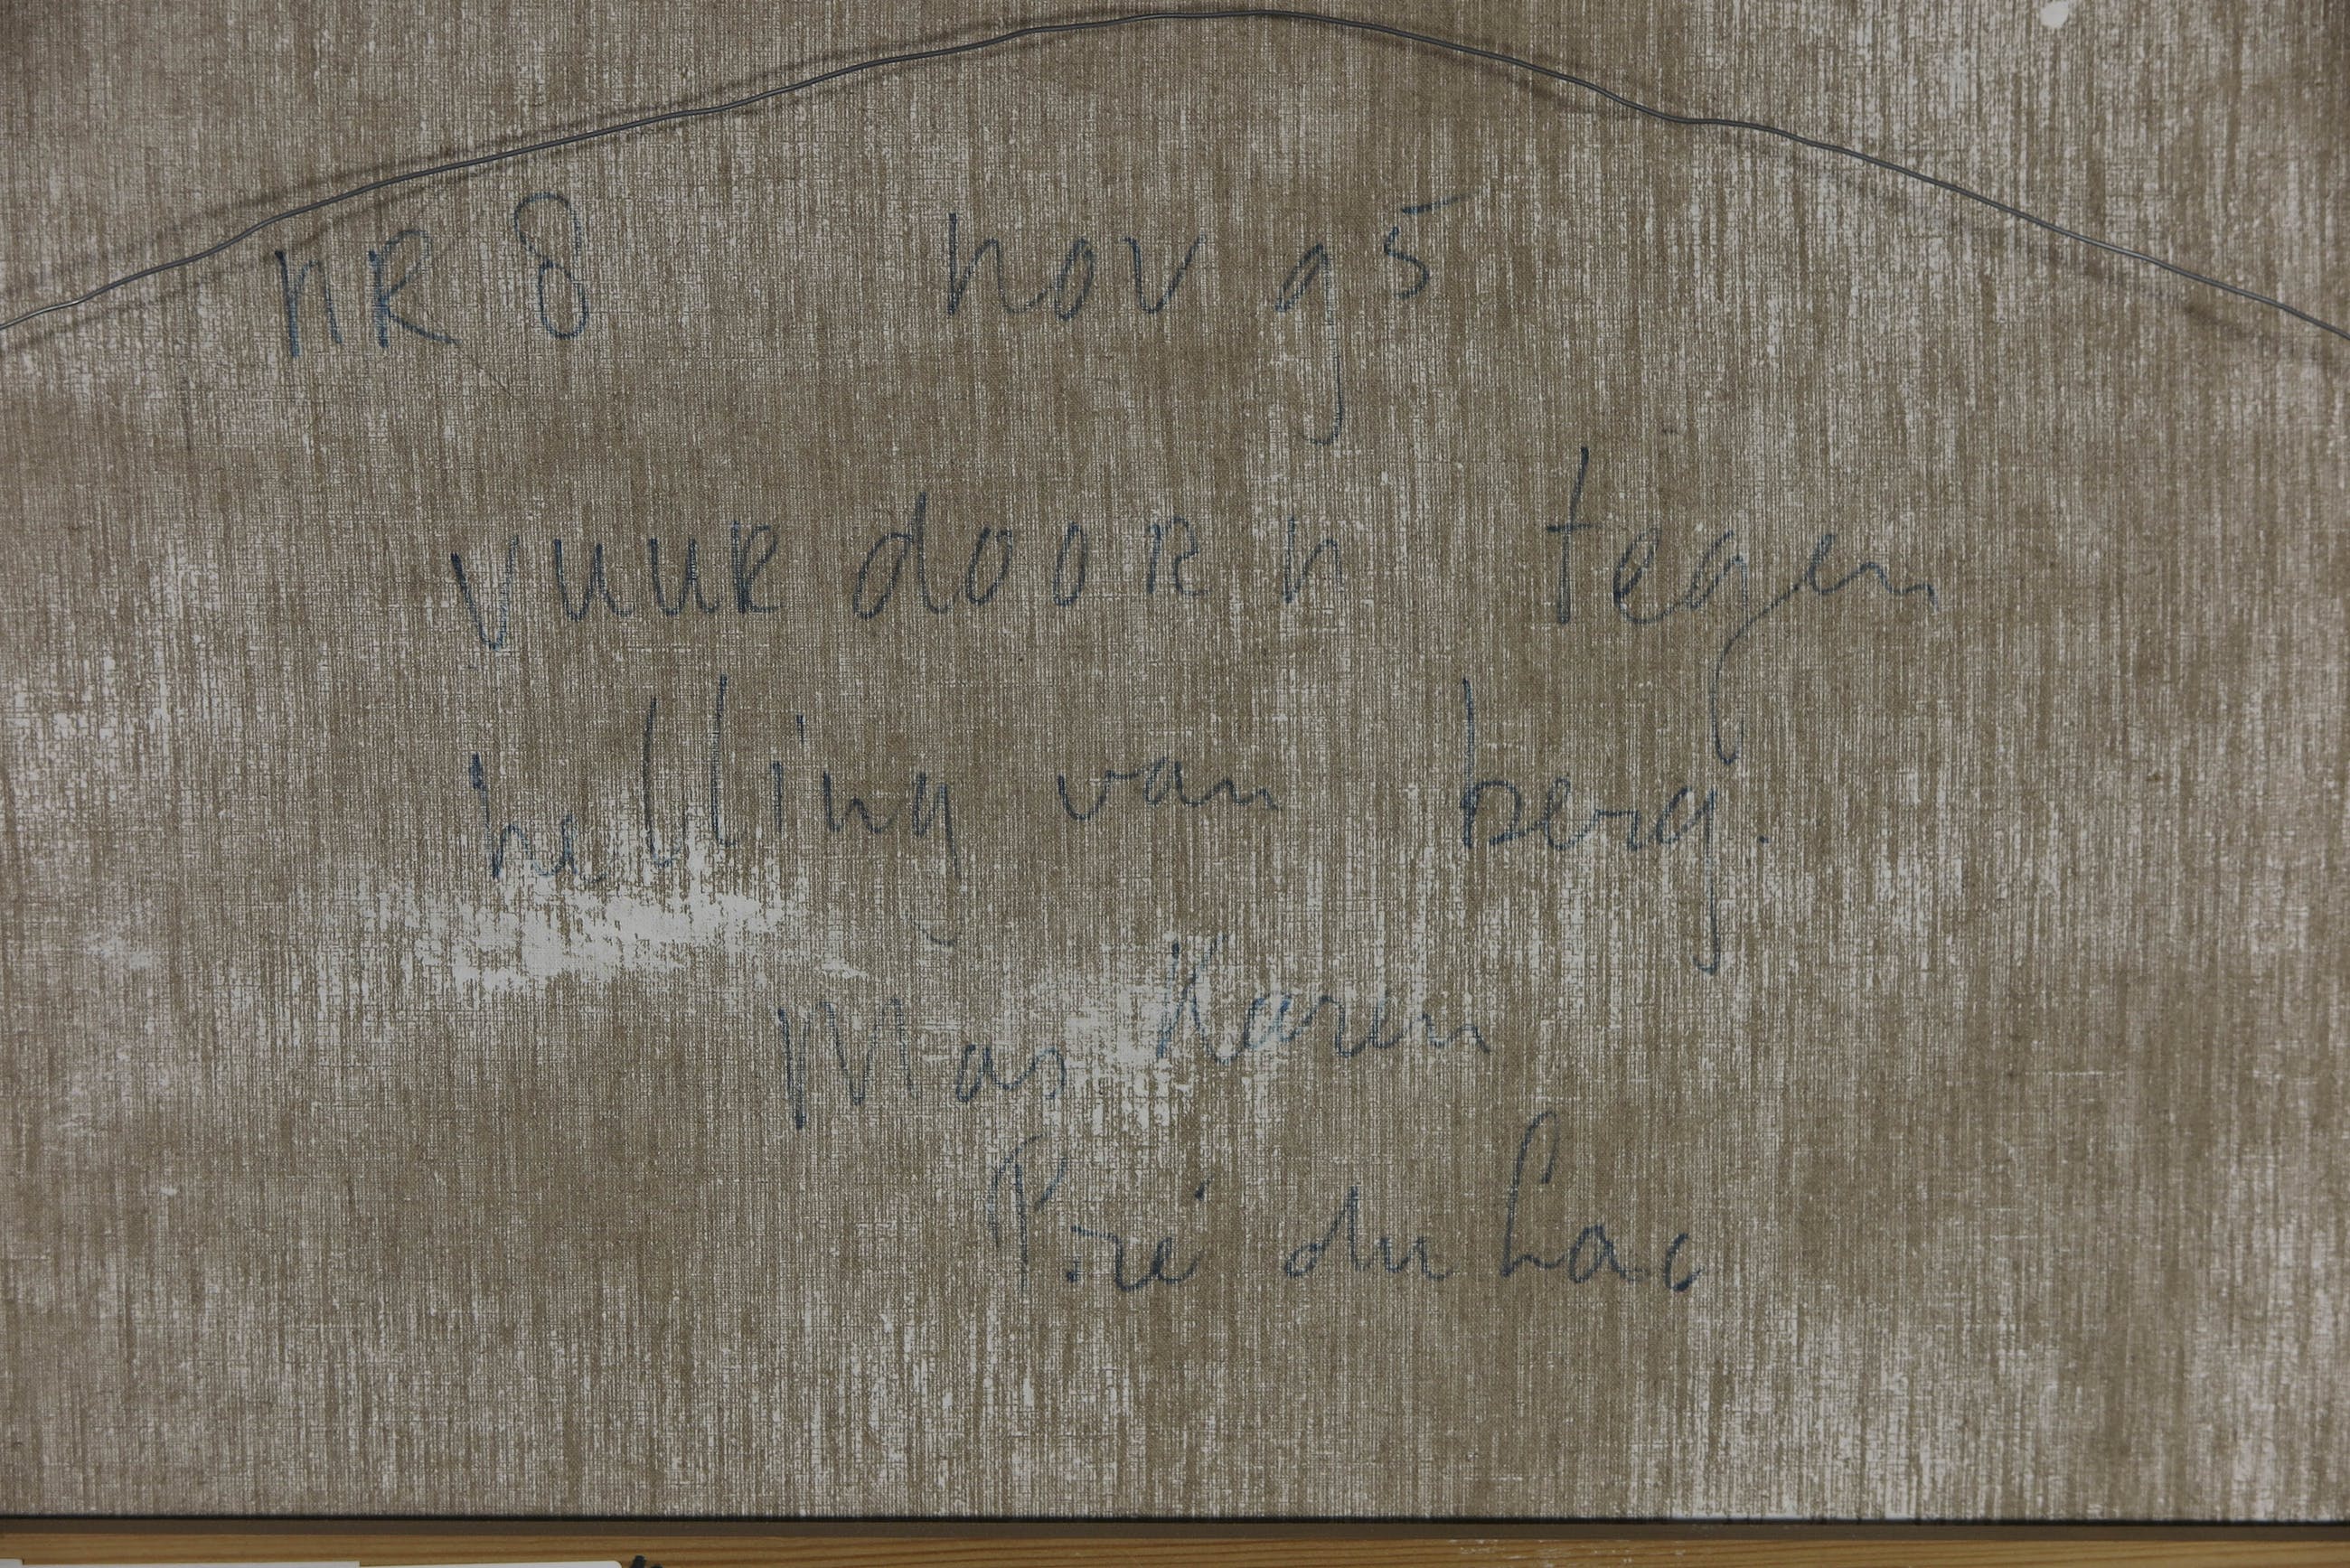 nR 8 nov 95
vuurdoorn tegen
helling van berg.
Mas Karen
Pré du Lac